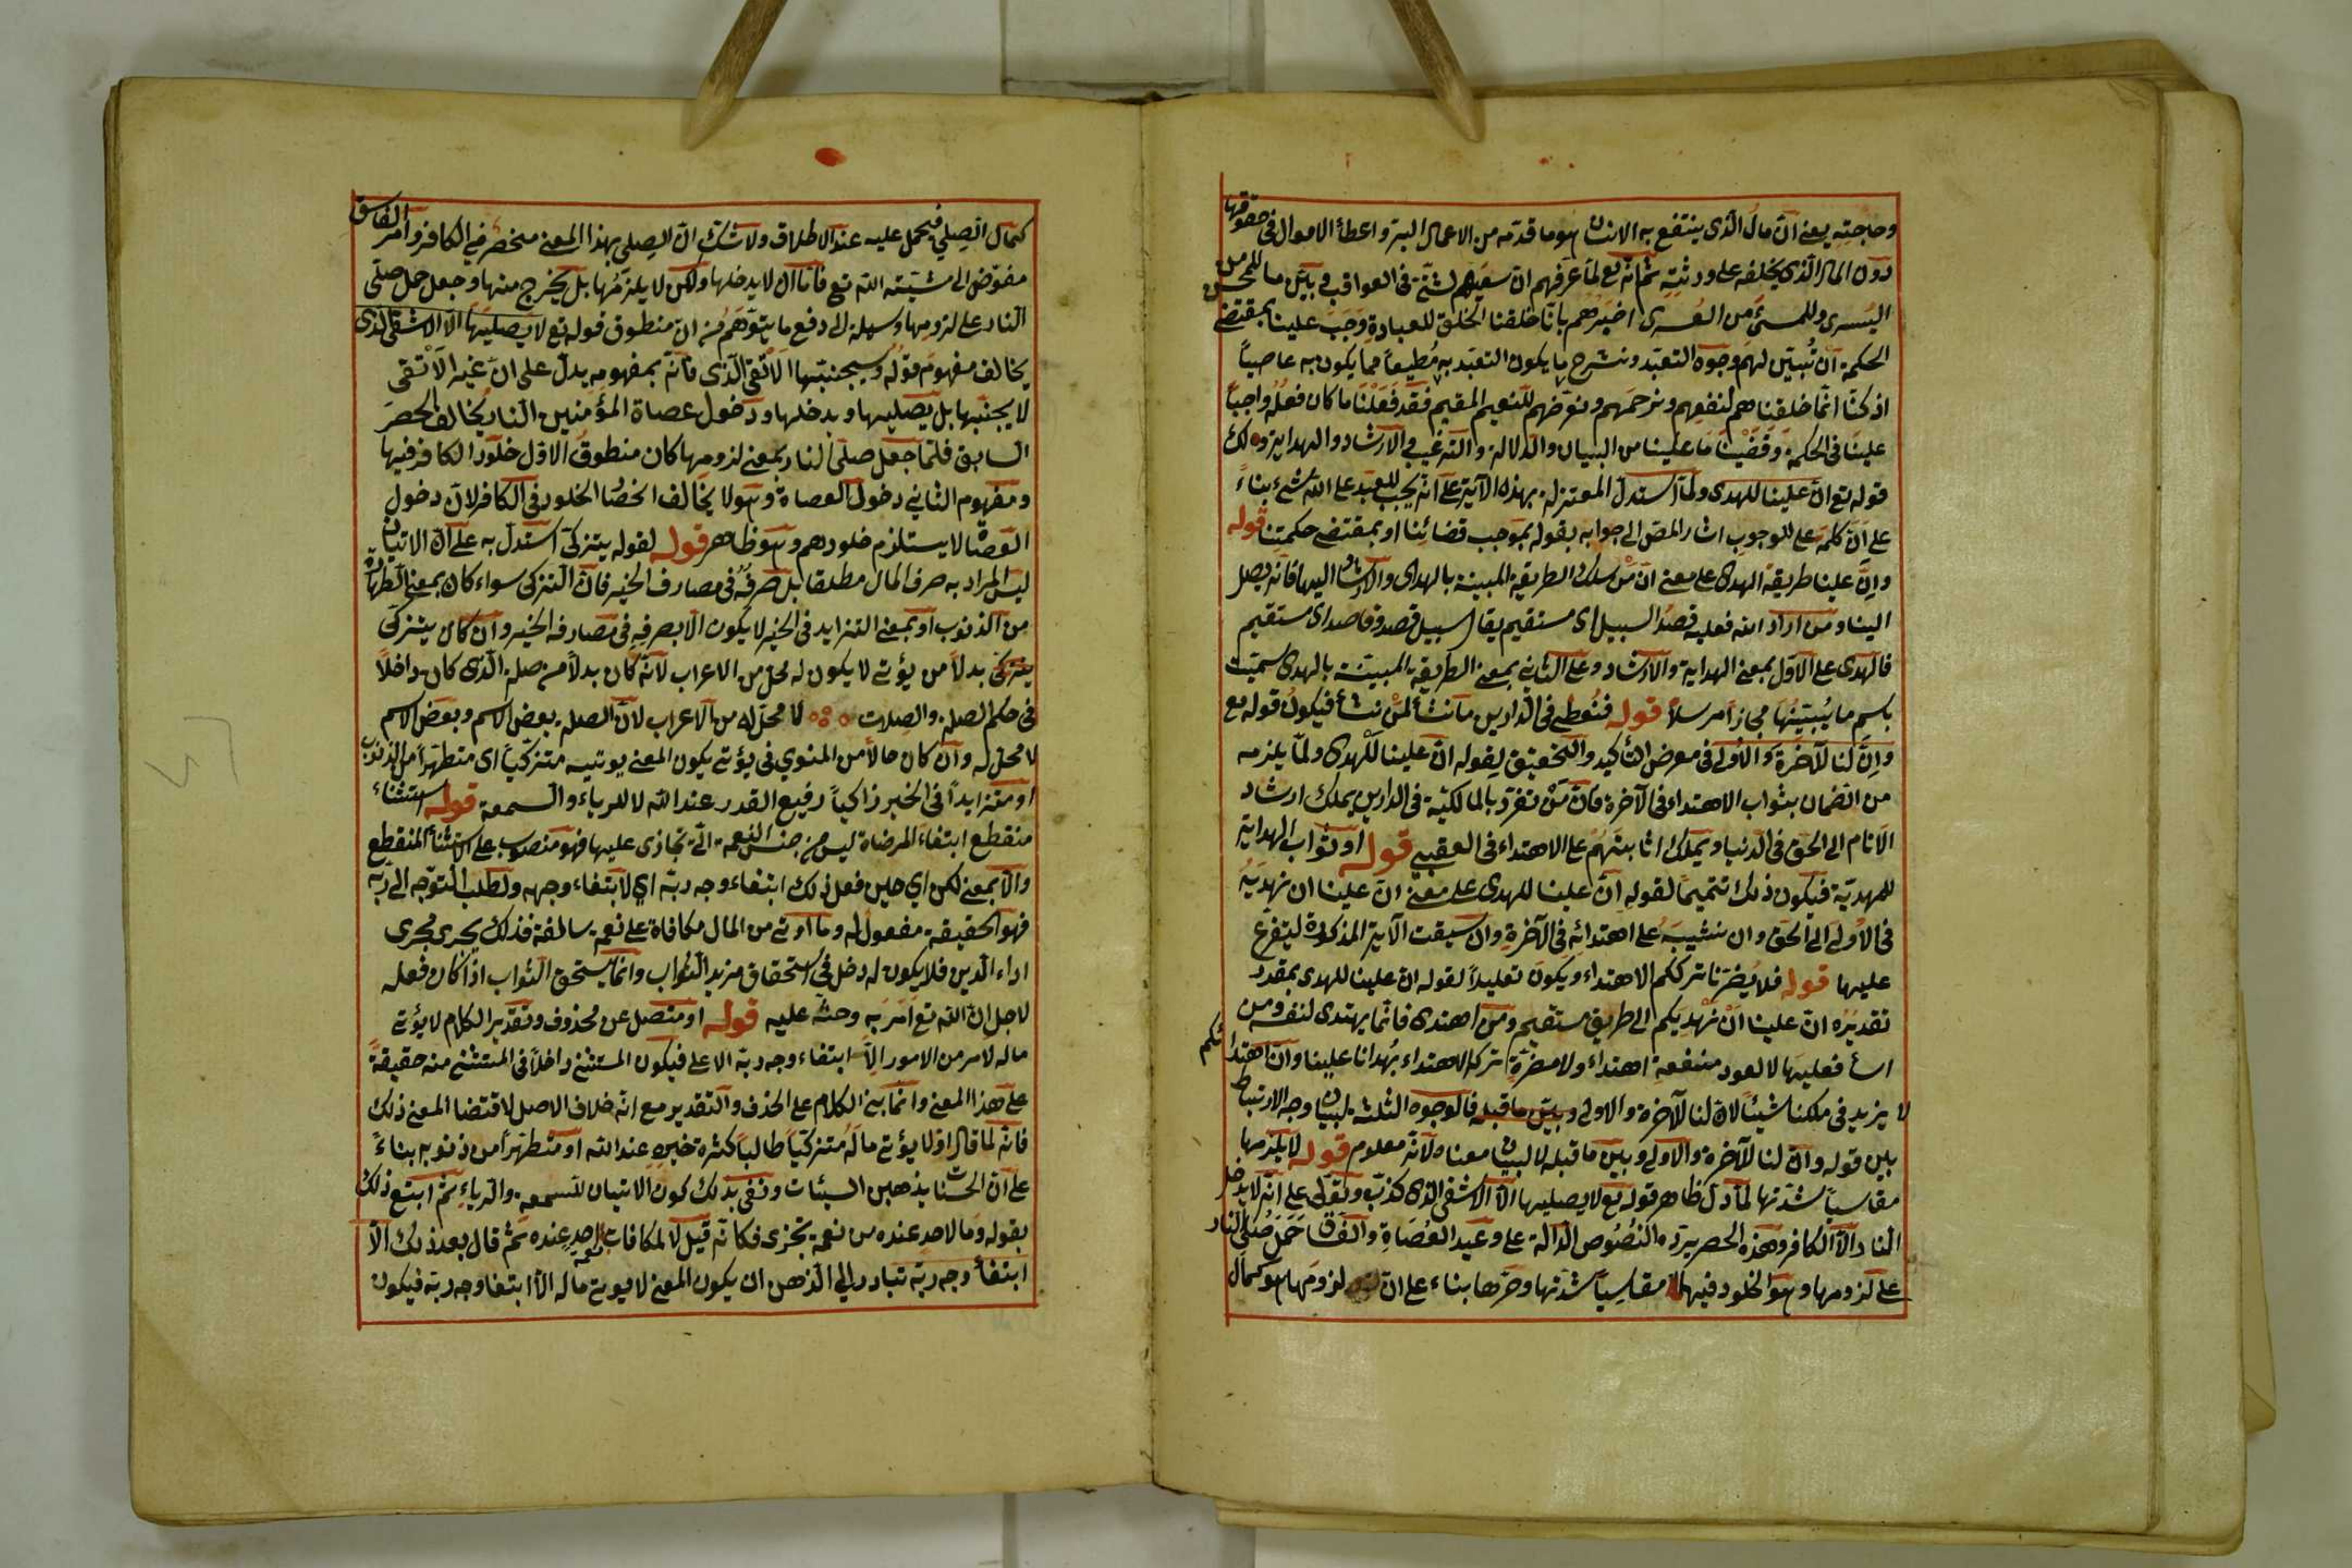 وحاجته يعنى ان مال الذى ينتفع به الانسان هو ما قدمه من الاعمال البر واعطاء الاموال فى حقوقها
دون المال الذى يخلفه على ورثته ثم انه تع لما عرفهم ان سعيهم لشتى فى العواقب وبين ما للمحسن من
اليسرى وللمسئ من العسرى اخبرهم بانا خلقنا الخلق للعبادة وجب علينا بمقتضى
الحكمة ان نبين لهم وجوه التعبد ونشرح ما يكون التعبد به مطيعا مما يكون به عاصيا
اذ كنا انما خلقناهم لنفعهم ونرحمهم ونعرضهم للنعيم المقيم فقد فعلنا ما كان فعله واجبا
علينا فى الحكمة وقضينا ما علينا من البيان والدلالة والترغيب والارشاد والهداية وذلك
قوله تع ان علينا للهدى ولما استدل المعتزلة بهذه الآية على انه يجب للعبد على الله شئ بناء
على ان كلمة على للوجوب اشار المص الى جوابه بقوله بموجب قضائنا او بمقتضى حكمتنا قوله
وان علينا طريقة الهدى على معنى ان من سلك الطريقة المبينة بالهدى والارشاد اليها فانه يصل
الينا ومن اراد الله فعليه قصد السبيل اى مستقيم يقال سبيل قصد وقاصد اى مستقيم
فالهدى على الاول بمعنى الهداية والارشاد وعلى الثانى بمعنى الطريقة المبينة بالهدى سميت
باسم ما يبينها مجازا مرسلا قوله فنعطى فى الدارين ما نشأ لمن نشأ فيكون قوله تع
وان لنا للآخرة والاولى فى معرض التأكيد والتحقيق لقوله ان علينا للهدى ولما يلزمه
من الضمان بثواب الاهتداء فى الآخرة فان من تفرد بالمالكية فى الدارين يملك ارشاد
الانام الى الحق فى الدنيا ويملك اثابتهم على الاهتداء فى العقبى قوله او ثواب الهداية
للمهدية فيكون ذلك تتميما لقوله ان علينا للهدى على معنى ان علينا ان نهديه
فى الاولى الى الحق وان نثيبه على اهتدائه فى الآخرة وان سيقت الآية المذكورة ليتفرع
عليها قوله فلا يضرنا ترككم الاهتداء ويكون تعليلا لقوله ان علينا للهدى بمقدر
تقديره ان علينا ان نهديكم الى طريق مستقيم ومن اهتدى فانما يهتدى لنفسه ومن
اساء فعليها لا لعود منفعة اهتداء ولا مضرة ترك الاهتداء بهدانا علينا وان اهتدائكم
لا يزيد فى ملكنا شيئا لان لنا للآخرة والاولى وبين ما قبله فالوجوه الثلثة لبيان وجه الارتباط
بين قوله وان لنا للآخرة والاولى وبين ما قبله لا لبيان معناه لانه معلوم قوله لا يلزمها
مقاسيا شدتها لما دل ظاهر قوله تع لا يصليها الا الاشقى الذى كذب وتولى على انه لا يدخل
النار الا الكافر وهذه الحصر يرده النصوص الدالة على وعيد العصاة والفساق حمل صلى النار
على لزومها وهو الخلود فيها مقاسيا شدتها وحرها بناء على ان لزومها هو كمال
كمال الصلى فيحمل عليه عند الاطلاق ولا شك ان الصلى بهذا المعنى منحصر فى الكافر وامر الفاسق
مفوض الى مشيئة الله تع فاما ان لا يدخلها ولكن لا يلزمها بل يخرج منها وجعل حمل صلى
النار على لزومها وسيلة الى دفع ما يتوهم من ان منطوق قوله تع لا يصليها الا الاشقى الذى
يخالف مفهوم قوله وسيجنبها الاتقى الذى فانه بمفهومه يدل على ان غير الاتقى
لا يجنبها بل يصليها ويدخلها ودخول عصاة المؤمنين النار يخالف الحصر
السابق فلما جعل صلى النار بمعنى لزومها كان منطوق الاول خلود الكافر فيها
ومفهوم الثانى دخول العصاة وهو لا يخالف الخصا الخلود فى الكافر لان دخول
العصاة لا يستلزم خلودهم وهو ظاهر قوله لقوله يتزكى استدل به على ان الاتيان
ليس المراد به صرف المال مطلقا بل صرفه فى مصارف الخير فان التزكى سواء كان بمعنى الطهارة
من الذنوب او بمعنى التزايد فى الخير لا يكون الا بصرفه فى مصارف الخير وان كان يتزكى
يتزكى بدلا من يؤتى لا يكون له محل من الاعراب لانه كان بدلا من صلة الذى كان داخلا
فى حكم الصلة والصلات لا محل له من الاعراب لان الصلة بعض الاسم وبعض الاسم
لا محل له وان كان حالا من المنوى فى يؤتى يكون المعنى يوتيه متزكيا اى متطهرا من الذنوب
او متزايدا فى الخير زاكيا رفيع القدر عند الله لا للرياء والسمعة قوله استثناء
منقطع ابتغاء المرضاة ليس من جنس النعمة التى تجازى عليها فهو منصوب على الاستثناء المنقطع
والا بمعنى لكن اى حين فعل ذلك ابتغاء وجه ربه اى لابتغاء وجهه ولطلب التوجه الى ربه
فهو الحقيقة مفعول له وما اوتى من المال مكافاة على نعمة سالفة فذلك يجرى مجرى
اداء الدين فلا يكون له دخل فى استحقاق مزيد الثواب وانما يستحق الثواب اذا كان فعله
لاجل ان الله تع امر به وحث عليه قوله او متصل عن محذوف وتقدير الكلام لا يؤتى
ماله لامر من الامور الا ابتغاء وجه ربه الاعلى فيكون المستثنى داخلا فى المستثنى منه حقيقة
على هذا المعنى وانما بنى الكلام على الحذف والتقدير مع انه خلاف الاصل لاقتضا المعنى ذلك
فانه لما قال اولا يؤتى ماله متزكيا طالبا كثرة خيره عند الله او متطهرا من ذنوبه بناء
على ان الحسنات يذهبن السيئات ونفى بذلك كون الاتيان للسمعة والرياء ثم اتبع ذلك
بقوله وما لاحد عنده من نعمة تجزى فكانه قيل لا لمكافات نعمة لاحد عنده ثم قال بعد ذلك الا
ابتغاء وجه ربه تبادر الى الذهن ان يكون المعنى لا يوتى ماله الا ابتغا وجه ربه فيكون